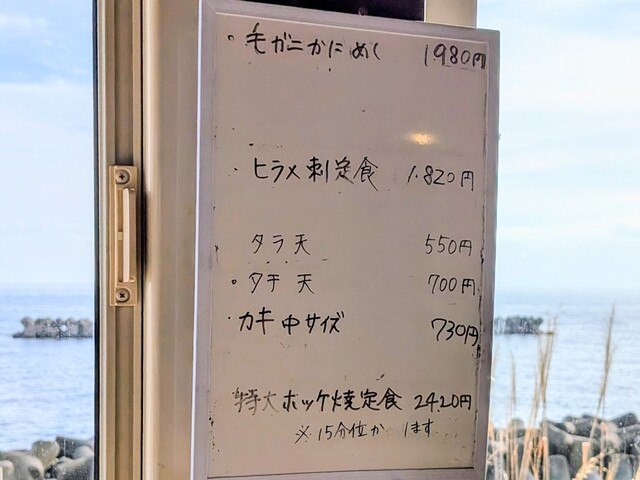 ・毛ガニかにめし 1980円
・ヒラメ刺定食 1.820円
タラ天 550円
・タチ天 700円
・カキ中サイズ 730円
特大ホッケ焼定食 2420円
※15分位か ります